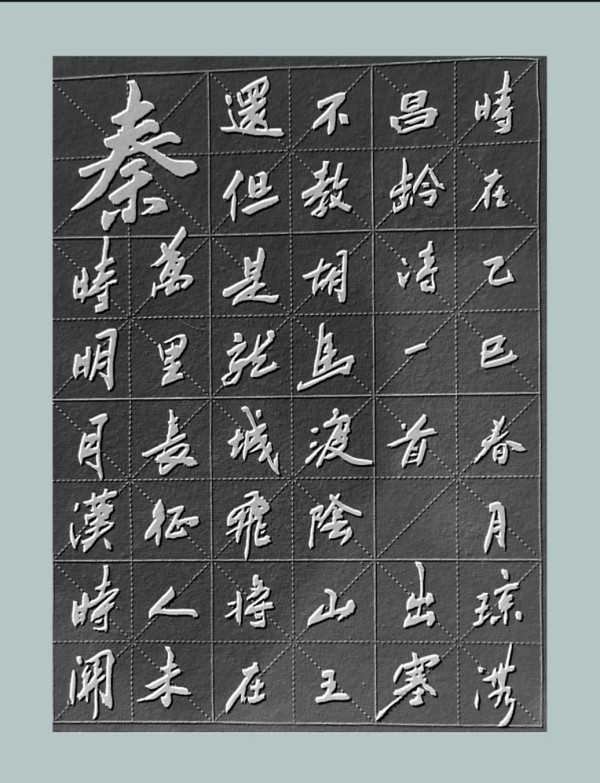 秦時明月漢時関
萬里長征人未
還但是龍城飛将在
不教胡馬渡陰山王
昌齡诗一首 出塞
時在乙巳春月琼